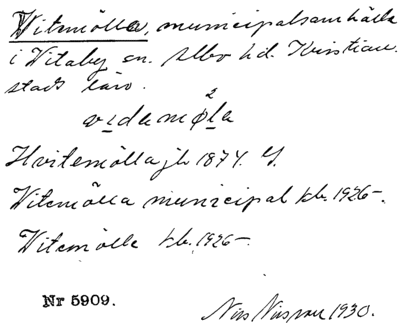 Vitemölla, municipalsamhälle
i Vitaby sn. Albo hd. Kristian-
stads län.
vidamøla
2
Hvitemölla jb 1874. 4.
Vitemölla municipal kb. 1926-.
Vitemölle kb. 1926-.
Nr 5909.
Nils 1930.